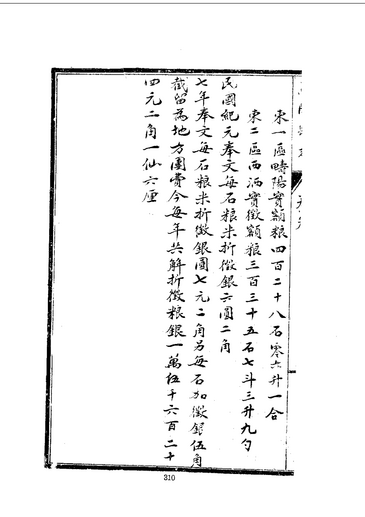 東一區疇陽實額粮四百二十八石零六升一合
東二區西洒實徵額粮三百三十五石七斗三升九勺
民國紀元奉文每石粮米折徵銀六圓二角
七年奉文每石粮米折徵銀圓七元二角另每石加徵銀伍角
截留為地方團費今每年共解折徵粮銀一萬伍千六百二十
四元二角一仙六厘
310